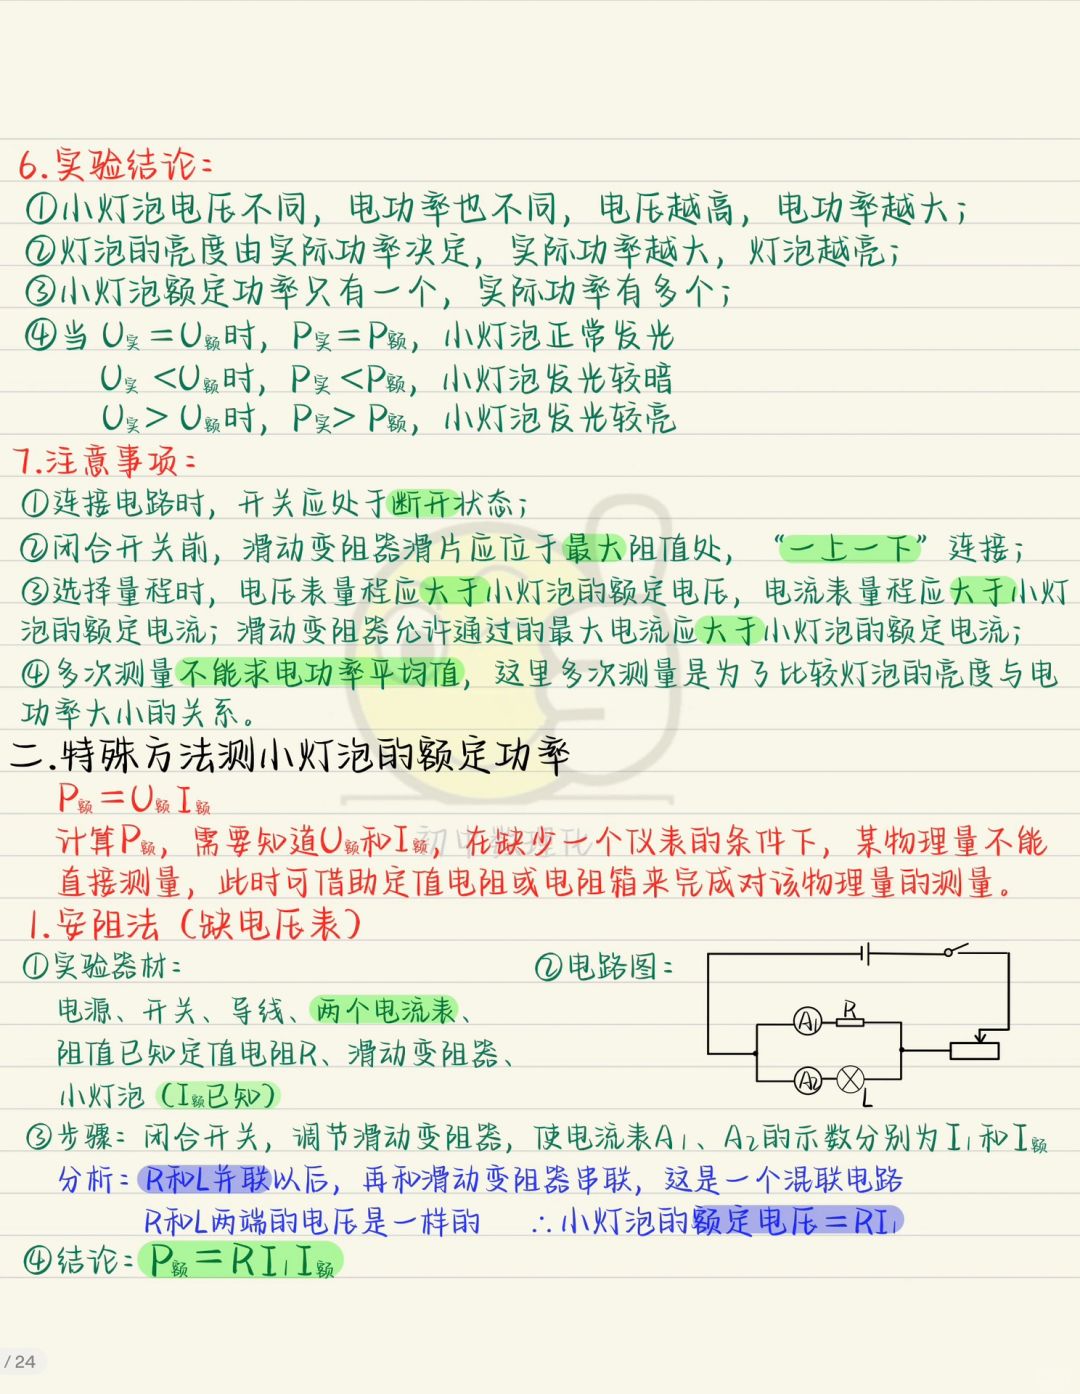 6.实验结论：
①小灯泡电压不同，电功率也不同，电压越高，电功率越大；
②灯泡的亮度由实际功率决定，实际功率越大，灯泡越亮；
③小灯泡额定功率只有一个，实际功率有多个；
④当 U实=U额时，P实=P额，小灯泡正常发光
U实<U额时，P实<P额，小灯泡发光较暗
U实>U额时，P实>P额，小灯泡发光较亮
7.注意事项：
①连接电路时，开关应处于断开状态；
②闭合开关前，滑动变阻器滑片应位于最大阻值处，“一上一下”连接；
③选择量程时，电压表量程应大于小灯泡的额定电压，电流表量程应大于小灯
泡的额定电流；滑动变阻器允许通过的最大电流应大于小灯泡的额定电流；
④多次测量不能求电功率平均值，这里多次测量是为了比较灯泡的亮度与电
功率大小的关系。
二.特殊方法测小灯泡的额定功率
P额=U额I额
初中数理化
计算P额，需要知道U额和I额，在缺少一个仪表的条件下，某物理量不能
直接测量，此时可借助定值电阻或电阻箱来完成对该物理量的测量。
1.安阻法（缺电压表）
①实验器材：
②电路图：
电源、开关、导线、两个电流表、
阻值已知定值电阻R、滑动变阻器、
小灯泡（I额已知）
A1 R
A2 L
③步骤：闭合开关，调节滑动变阻器，使电流表A1、A2的示数分别为I1和I额
分析：R和L并联以后，再和滑动变阻器串联，这是一个混联电路
R和L两端的电压是一样的 ∴小灯泡的额定电压=RI1
④结论：P额=RI1I额
/ 24